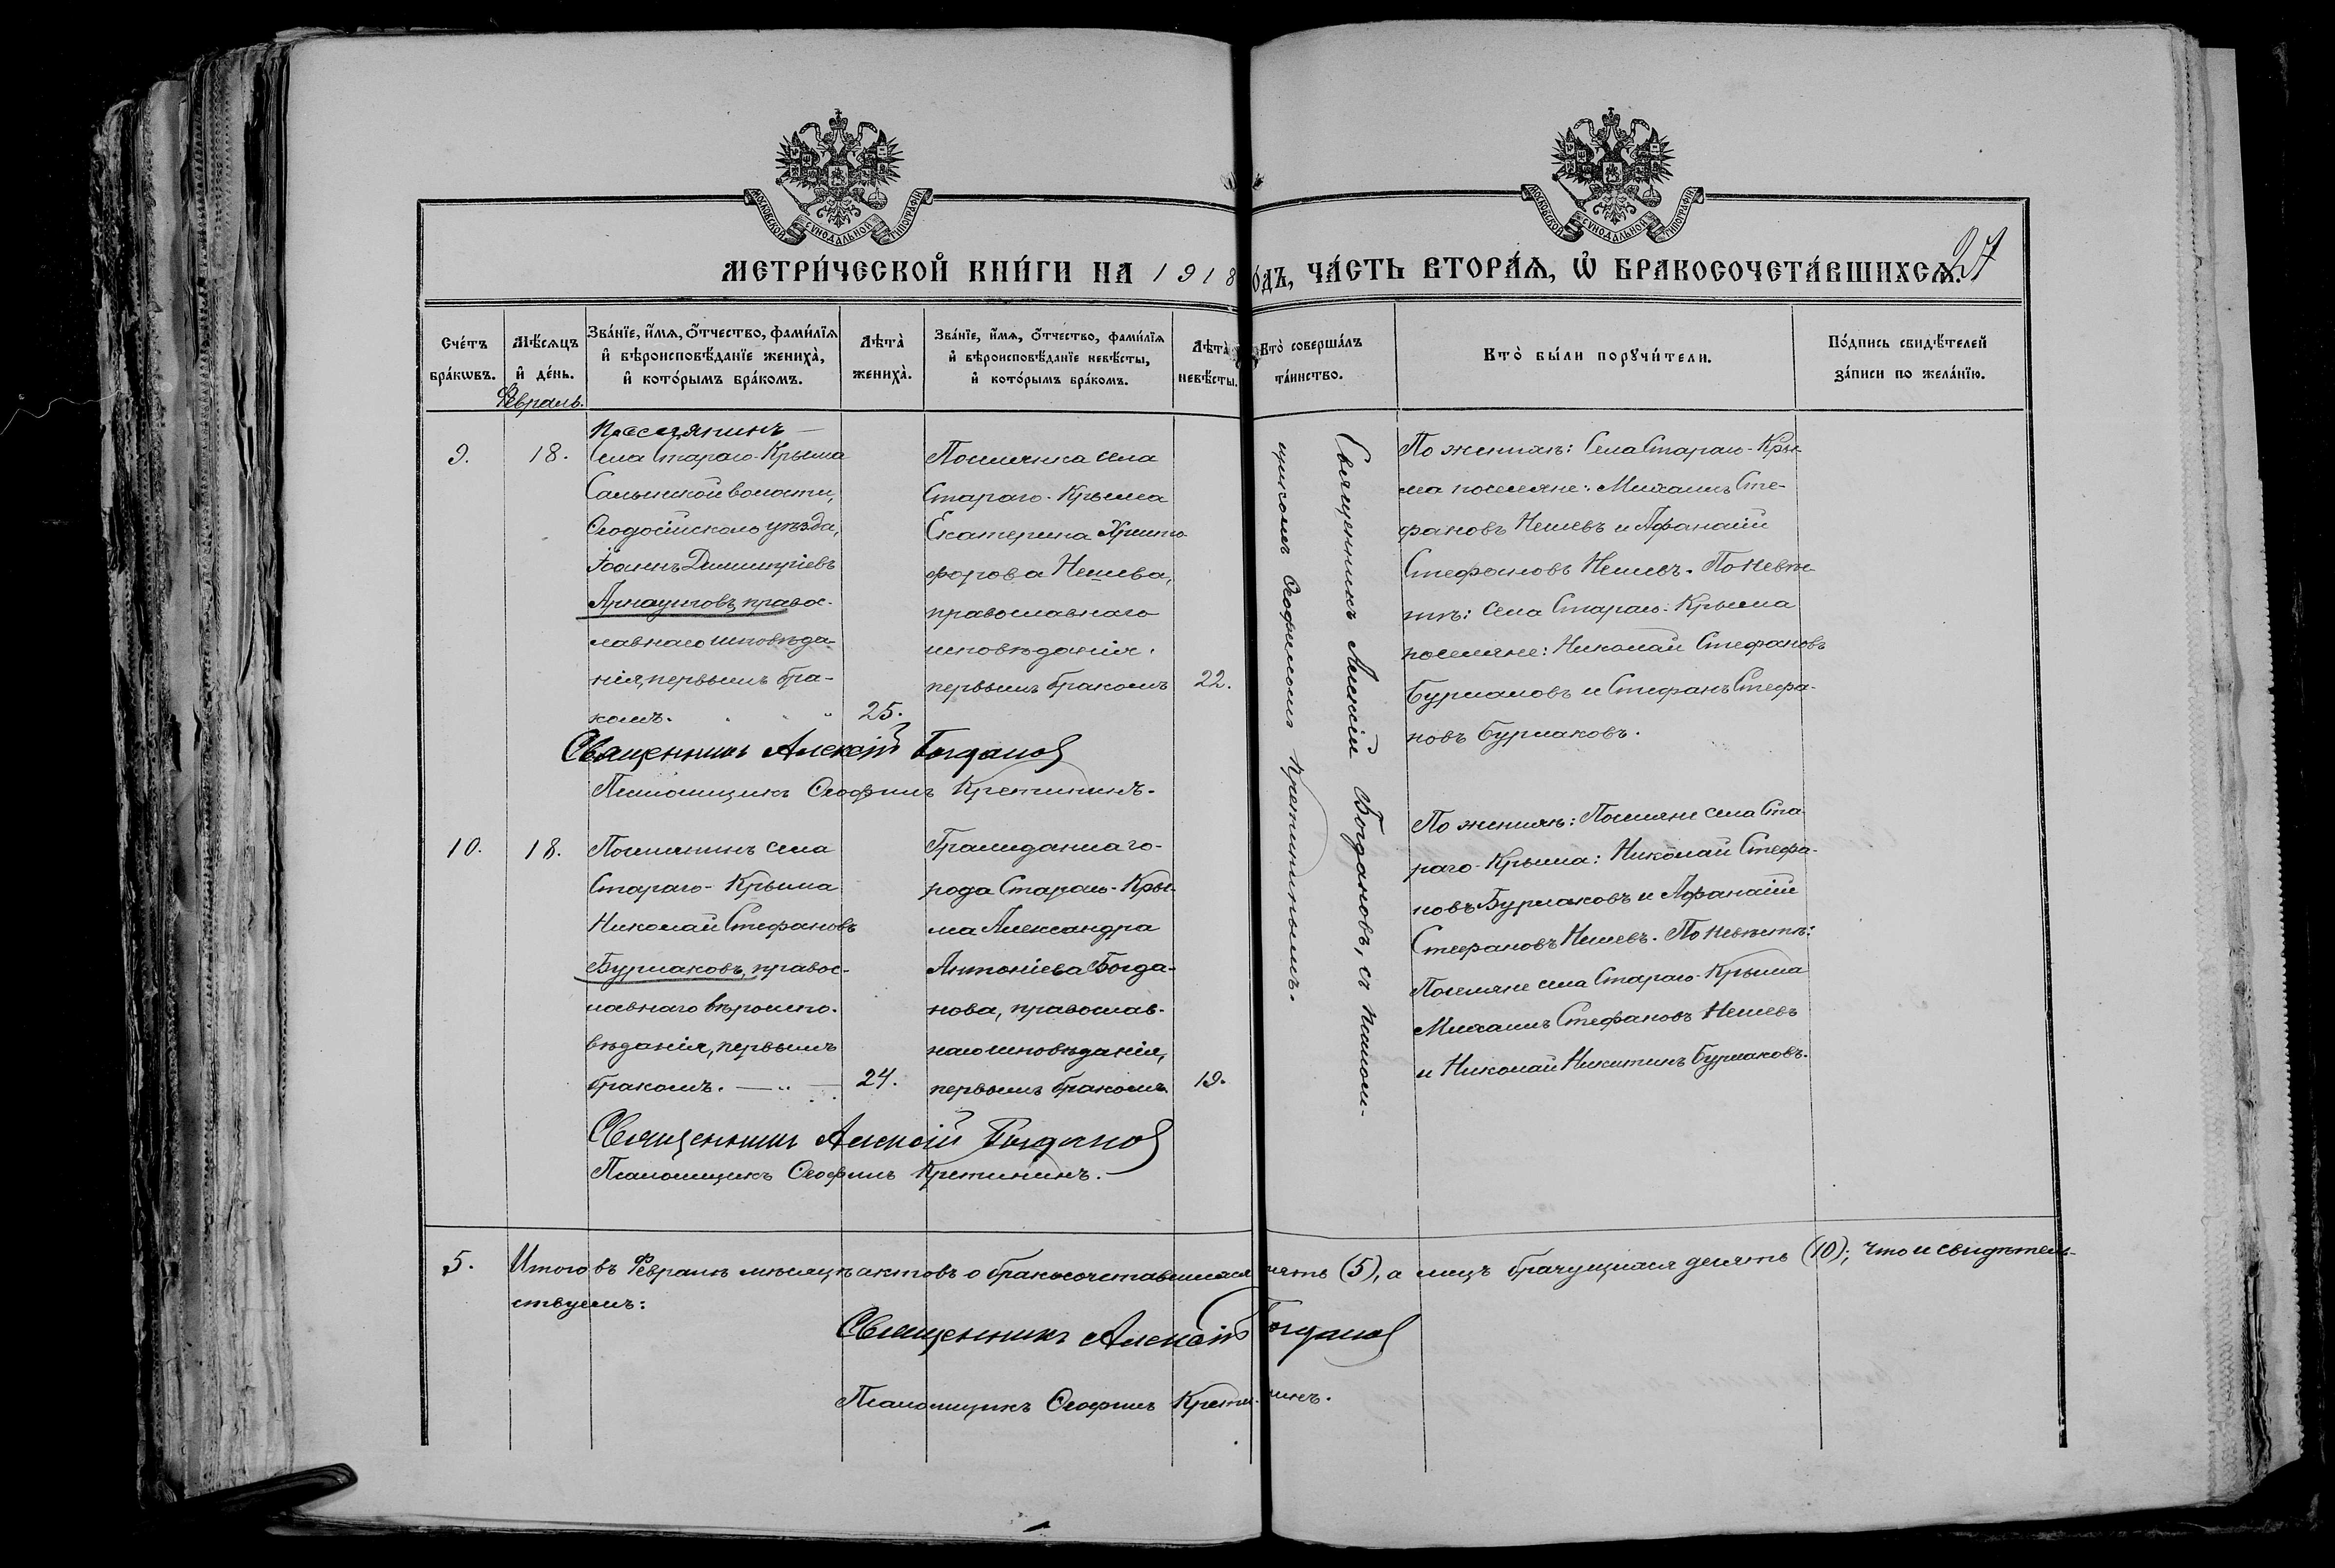 МОСКОВСКОЙ СѴНОДАЛЬНОЙ ТИПОГРАФІИ
МОСКОВСКОЙ СѴНОДАЛЬНОЙ ТИПОГРАФІИ
МЕТРИ́ЧЕСКОЙ КНИ́ГИ НА 1918
О́ДЪ, ЧА́СТЬ ВТОРА́Ѧ, Ѡ҆ БРАКОСОЧЕТА́ВШИХСѦ.
27
Сче́тъ бра́кѡвъ.
Мѣ́сѧцъ и҆ де́нь.
Зва́нїе, и҆́мѧ, ѻ҆́тчество, фами́лїѧ
и҆ вѣроисповѣ́данїе жениха̀,
и҆ кото́рымъ бра́комъ.
Лѣта̀ жениха̀.
Зва́нїе, и҆́мѧ, ѻ҆́тчество, фами́лїѧ
и҆ вѣроисповѣ́данїе невѣ́сты,
и҆ кото́рымъ бра́комъ.
Лѣта̀ невѣ́сты.
Кто̀ соверша́лъ та́инство.
Кто̀ бы́ли порꙋчи́тели.
По́дпись свидѣ́телей
за́писи по жела́нїю.
Февраль.
9.
18.
Поселянинъ
Села Стараго-Крыма
Салынской волости,
Ѳеодосійскаго уѣзда,
Іоаннъ Димитріевъ
Арнаутовъ, правос-
лавнаго исповѣда-
нія, первымъ бра-
комъ.
25.
Поселянка села
Стараго-Крыма
Екатерина Христо-
форова Нешева,
православнаго
исповѣданія,
первымъ бракомъ
22.
Священникъ Алексій Богдановъ, съ псалом-
щикомъ Ѳеофиломъ Кретининымъ.
По женихѣ: Села Стараго-Кры-
ма поселяне: Михаилъ Сте-
фановъ Нешевъ и Афанасій
Стефановъ Нешевъ. По невѣс-
тѣ: Села Стараго-Крыма
поселяне: Николай Стефановъ
Бурлаковъ и Стефанъ Стефа-
новъ Бурлаковъ.
Священникъ Алексій Богданов
Псаломщикъ Ѳеофилъ Кретининъ.
10.
18.
Поселянинъ села
Стараго-Крыма
Николай Стефановъ
Бурлаковъ, правос-
лавнаго вѣроиспо-
вѣданія, первымъ
бракомъ.
24.
Гражданка го-
рода Стараго-Кры-
ма Александра
Антоніева Богда-
нова, православ-
наго исповѣданія,
первымъ бракомъ.
19.
По женихѣ: Поселяне села Ста-
раго-Крыма: Николай Стефа-
новъ Бурлаковъ и Афанасій
Стефановъ Нешевъ. По невѣстѣ:
Поселяне села Стараго-Крыма
Михаилъ Стефановъ Нешевъ
и Николай Никитинъ Бурлаковъ.
Священникъ Алексій Богданов
Псаломщикъ Ѳеофилъ Кретининъ.
5.
Итого въ Февралѣ мѣсяцѣ актовъ о бракосочетавшихся пять (5), а лицъ брачущихся десять (10); что и свидѣтель-
ствуемъ:
Священникъ Алексій Богданов
Псаломщикъ Ѳеофилъ Кретининъ.